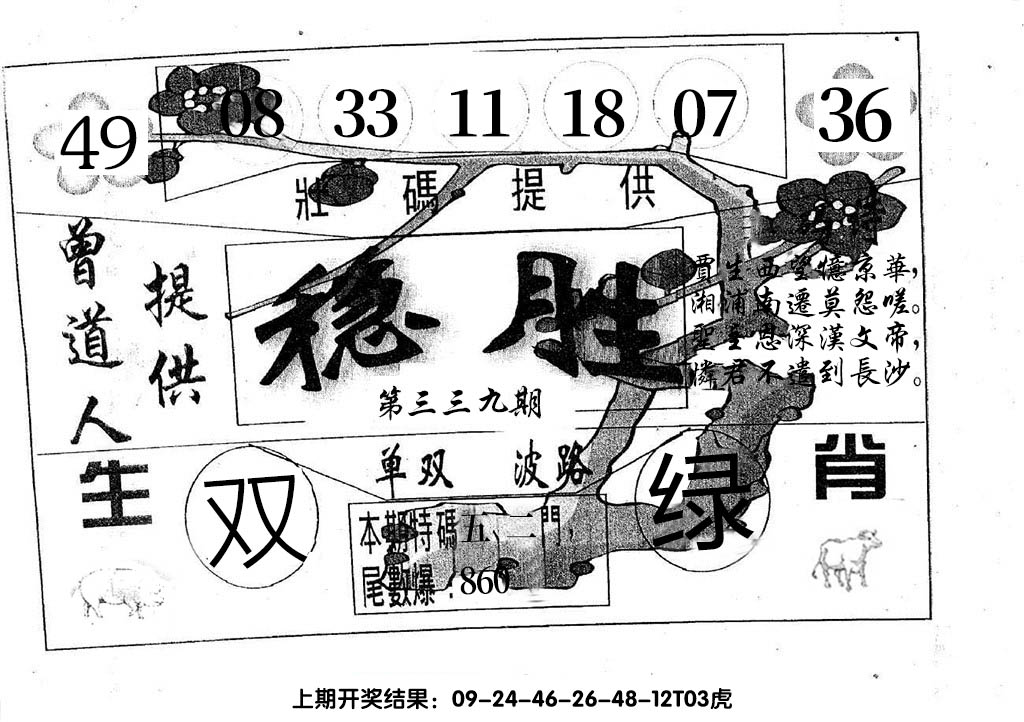 49 08 33 11 18 07 36
壯碼提供
特
曾道人
提供
稳胜
第三三九期
賈生西望憶京華，
湘浦南遷莫怨嗟。
聖主恩深漢文帝，
憐君不遣到長沙。
生肖
单双 波路
双
绿
本期特碼五、二門，
尾數爆：860
上期开奖结果：09-24-46-26-48-12T03虎